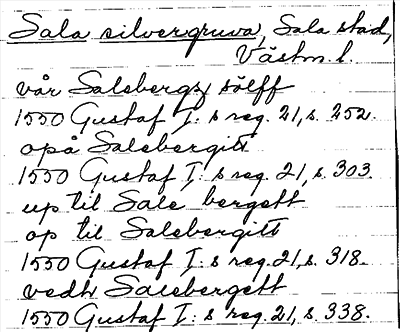 Sala silvergruva, Sala stad,
Västm. l.
vår Salebergz sölff
1550 Gustaf I: s reg. 21, s. 252.
opå Salebergitt
1550 Gustaf I: s reg. 21, s. 303.
up til Sale bergett
op til Salebergitt
1550 Gustaf I: s reg. 21, s. 318.
vedh Salebergett
1550 Gustaf I: s reg. 21, s. 338.